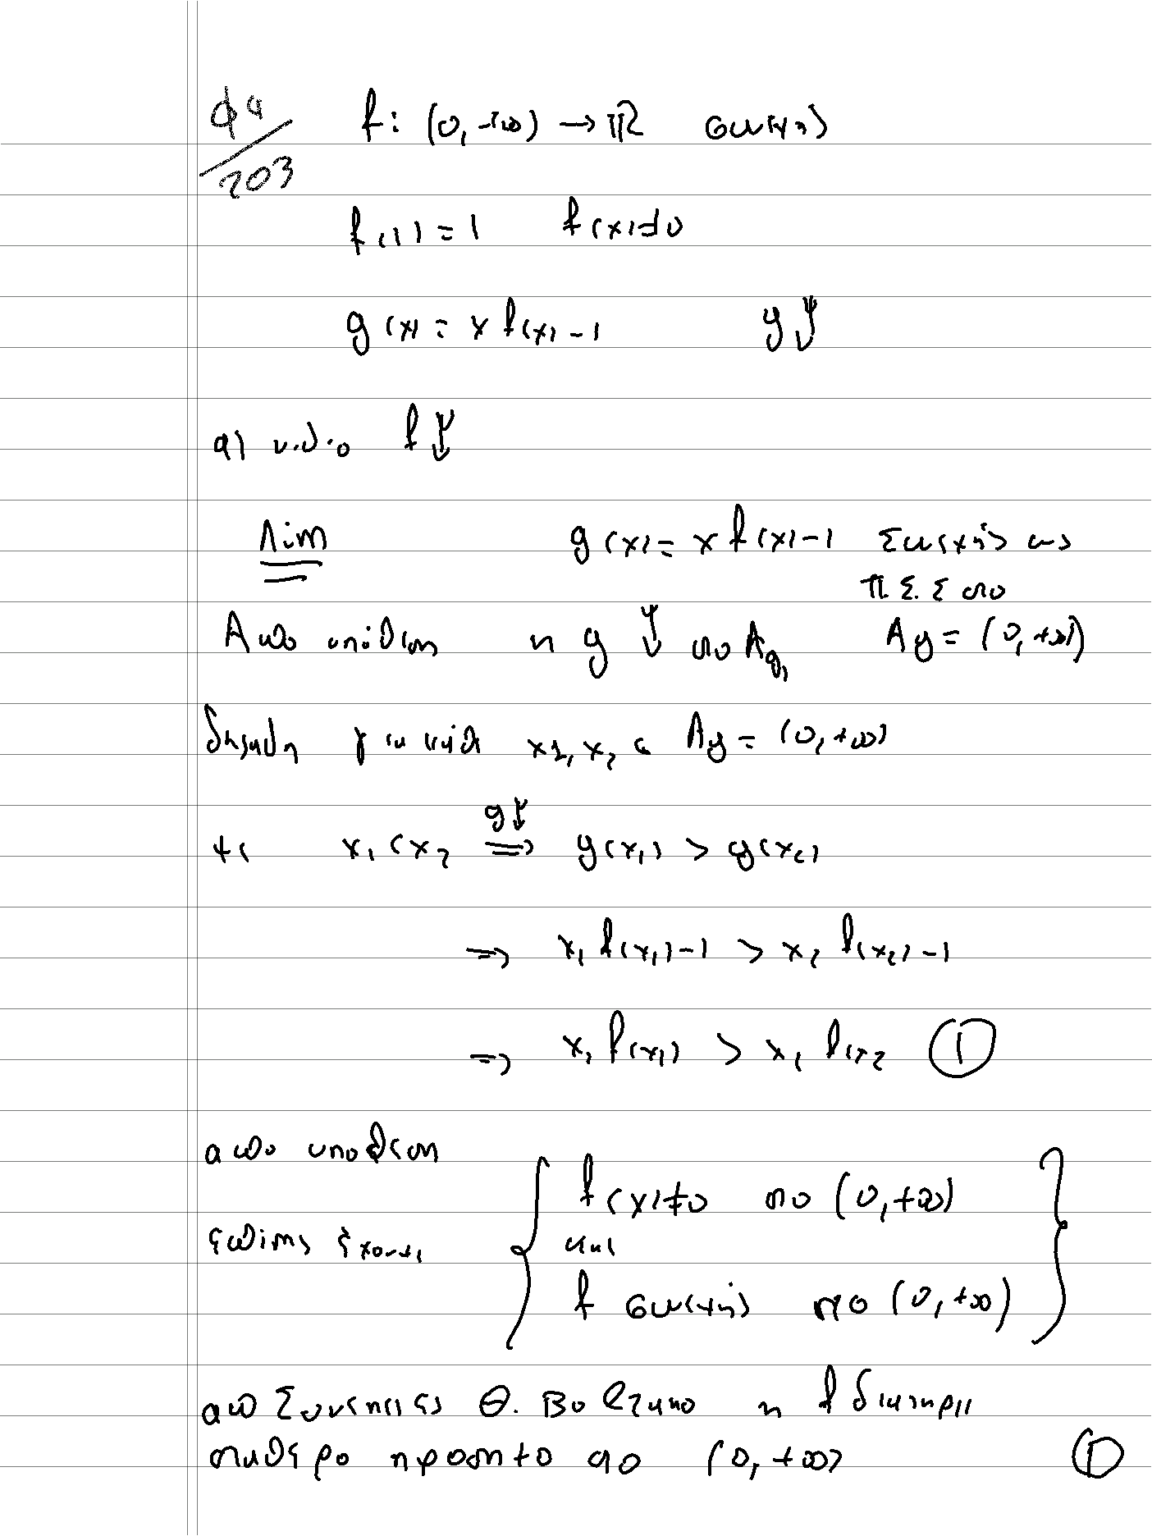 φ4/203 f: (0, +∞) → ℝ συνεχής
f(1) = 1 f(x) ≠ 0
g(x) = x f(x) - 1 g↓
α) ν.δ.ο f↓
Λύση g(x) = x f(x) - 1 Συνεχής ως
Π.Σ.Σ στο
Από υπόθεση η g ↓ στο A_g, A_g = (0, +∞)
δηλαδή για κάθε x1, x2 ∈ A_g = (0, +∞)
με x1 < x2 ⇒ (g↓) g(x1) > g(x2)
⇒ x1 f(x1) - 1 > x2 f(x2) - 1
⇒ x1 f(x1) > x2 f(x2 ①
από υπόθεση { f(x) ≠ 0 στο (0, +∞)
επίσης έχουμε και
f συνεχής στο (0, +∞) }
από Συνέπειες Θ. Bolzano η f διατηρεί
σταθερό πρόσημο στο (0, +∞) ①